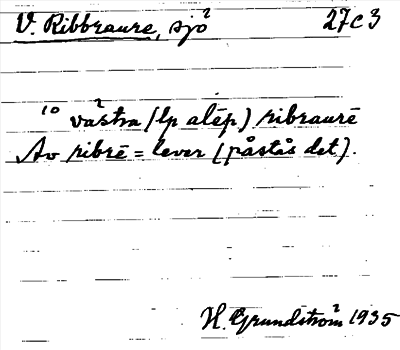 V. Ribbraure, sjö 27c3
1º västra (lp alēp) ribraurē
Av ribrē = lever (påstås det).
H. Grundström 1935